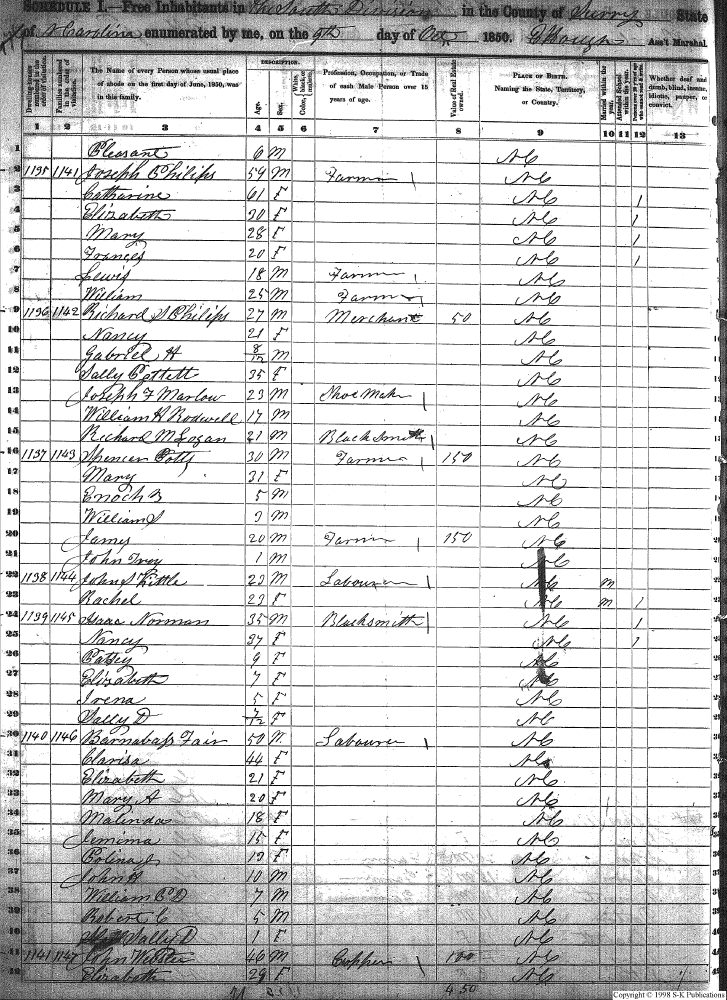 SCHEDULE I.—Free Inhabitants in the South Division in the County of Surry State
of N Carolina enumerated by me, on the 9th day of Oct 1850. Ass't Marshal.
DESCRIPTION.
Dwelling-houses numbered in the order of visitation.
Families numbered in the order of visitation.
The Name of every Person whose usual place of abode on the first day of June, 1850, was in this family.
Age.
Sex.
White, black, or mulatto.
Color,
Profession, Occupation, or Trade of each Male Person over 15 years of age.
Value of Real Estate owned.
PLACE OF BIRTH. Naming the State, Territory, or Country.
Married within the year.
Attended School within the year.
Whether deaf and dumb, blind, insane, idiotic, pauper, or convict.
1 2 3 4 5 6 7 8 9 10 11 12 13
1 Pleasant 6 M NC
2 1135 1141 Joseph Philips 59 M Farmer NC
3 Catharine 61 F NC 1
4 Elizabeth 30 F NC 1
5 Mary 28 F NC 1
6 Frances 20 F NC 1
7 Lewis 18 M Farmer NC
8 William 25 M Farmer NC
9 1136 1142 Richard S Philips 27 M Merchant 50 NC
10 Nancy 21 F NC
11 Gabriel H 8/12 M NC
12 Sally 35 F NC
13 Joseph F Marlow 23 M Shoe Maker NC
14 William H Rodwell 17 M NC
15 Richard M Logan 21 M Blacksmith NC
16 1137 1143 Spencer 30 M Farmer 150 NC
17 Mary 31 F NC
18 Enoch 5 M NC
19 William S 3 M NC
20 James 20 M Farmer 150 NC
21 John 1 M NC
22 1138 1144 John S Kittle 23 M Labourer NC M
23 Rachel 23 F NC M 1
24 1139 1145 Isaac Norman 35 M Blacksmith NC 1
25 Nancy 37 F NC 1
26 Patsey 9 F NC
27 Elizabeth 7 F NC
28 Irena 5 F NC
29 Sally D 7/12 F NC
30 1140 1146 Barnabas Fair 50 M Labourer NC
31 Clarisa 44 F NC
32 Elizabeth 21 F NC
33 Mary A 20 F NC
34 Malinda 18 F NC
35 Jemima 15 F NC
36 F NC
37 John H 10 M NC
38 William 7 M NC
39 Robert C 5 M NC
40 Sally D 1 F NC
41 1141 1147 John Webster 46 M 100 NC
42 Elizabeth 29 F NC
450
Copyright © 1998 S-K Publications